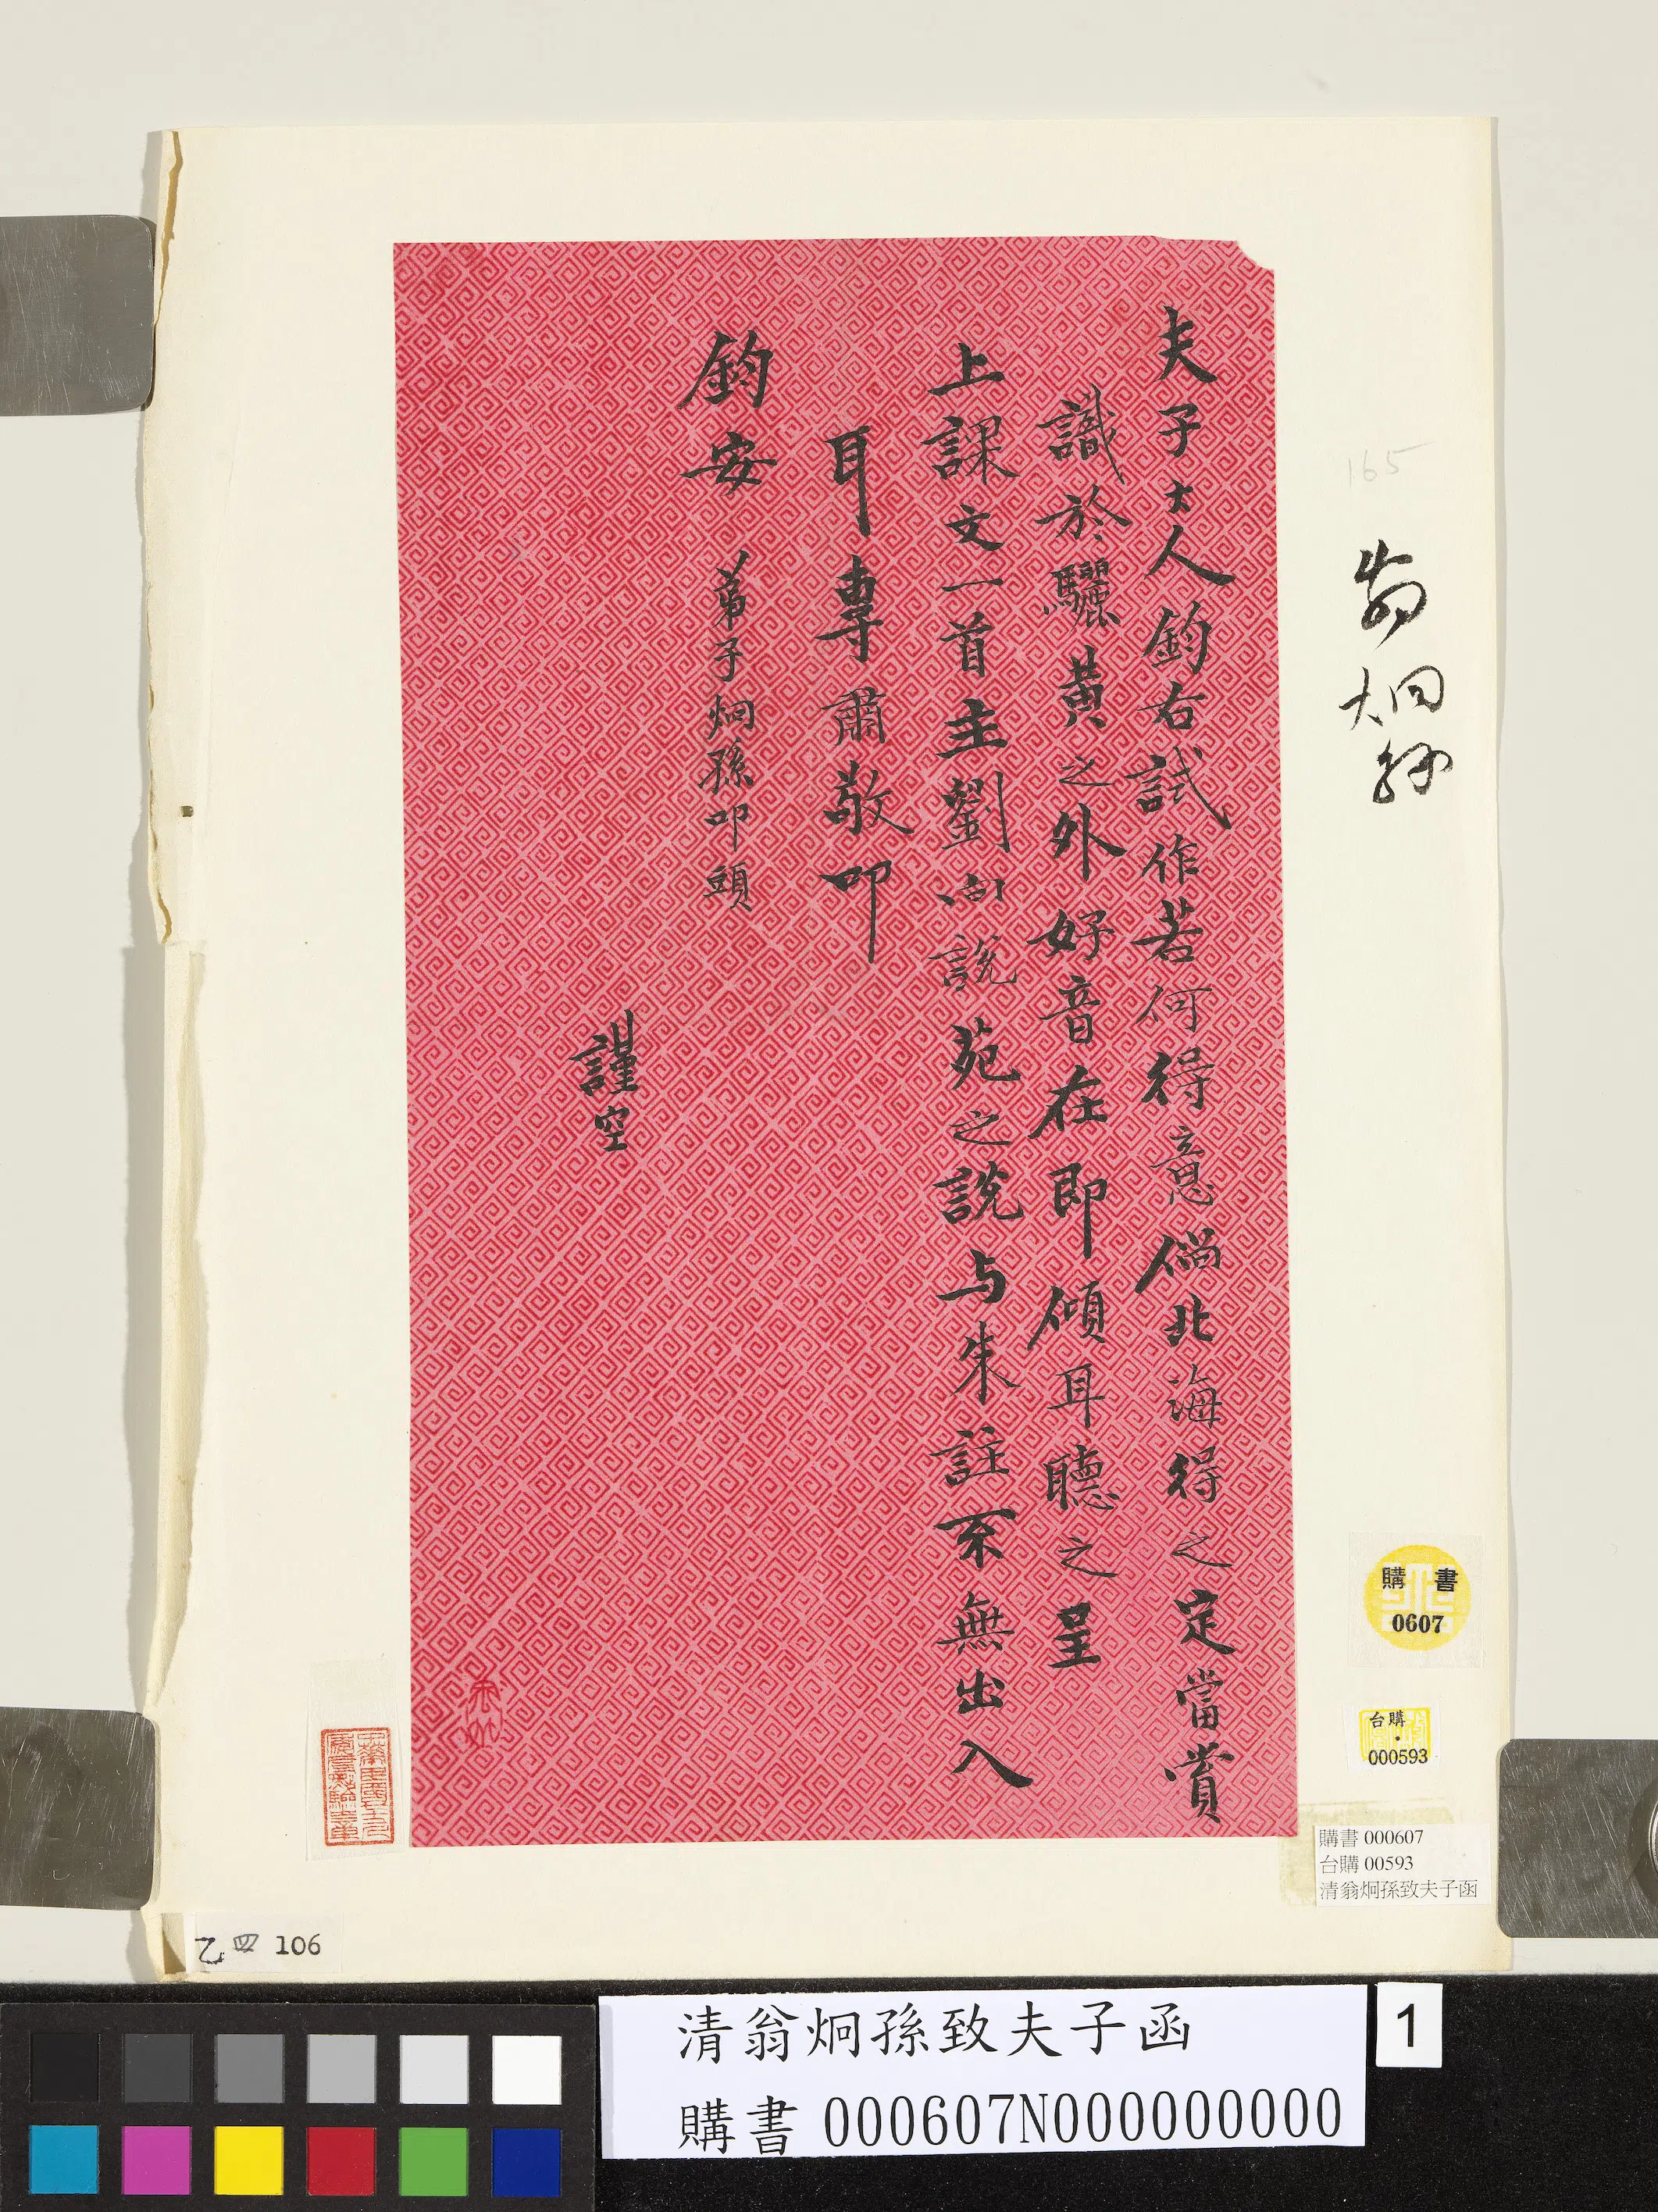 夫子大人鈞右試作若何得意倘北海得之定當賞
識於驪黃之外好音在即傾耳聽之呈
上課文一首主劉向說苑之說与朱註不無出入
耳專肅敬叩
鈞安 弟子炯孫叩頭
謹空
165
翁炯孫
購書
0607
台購
000593
購書 000607
台購 00593
清翁炯孫致夫子函
乙四 106
清翁炯孫致夫子函
購書 000607N000000000
1